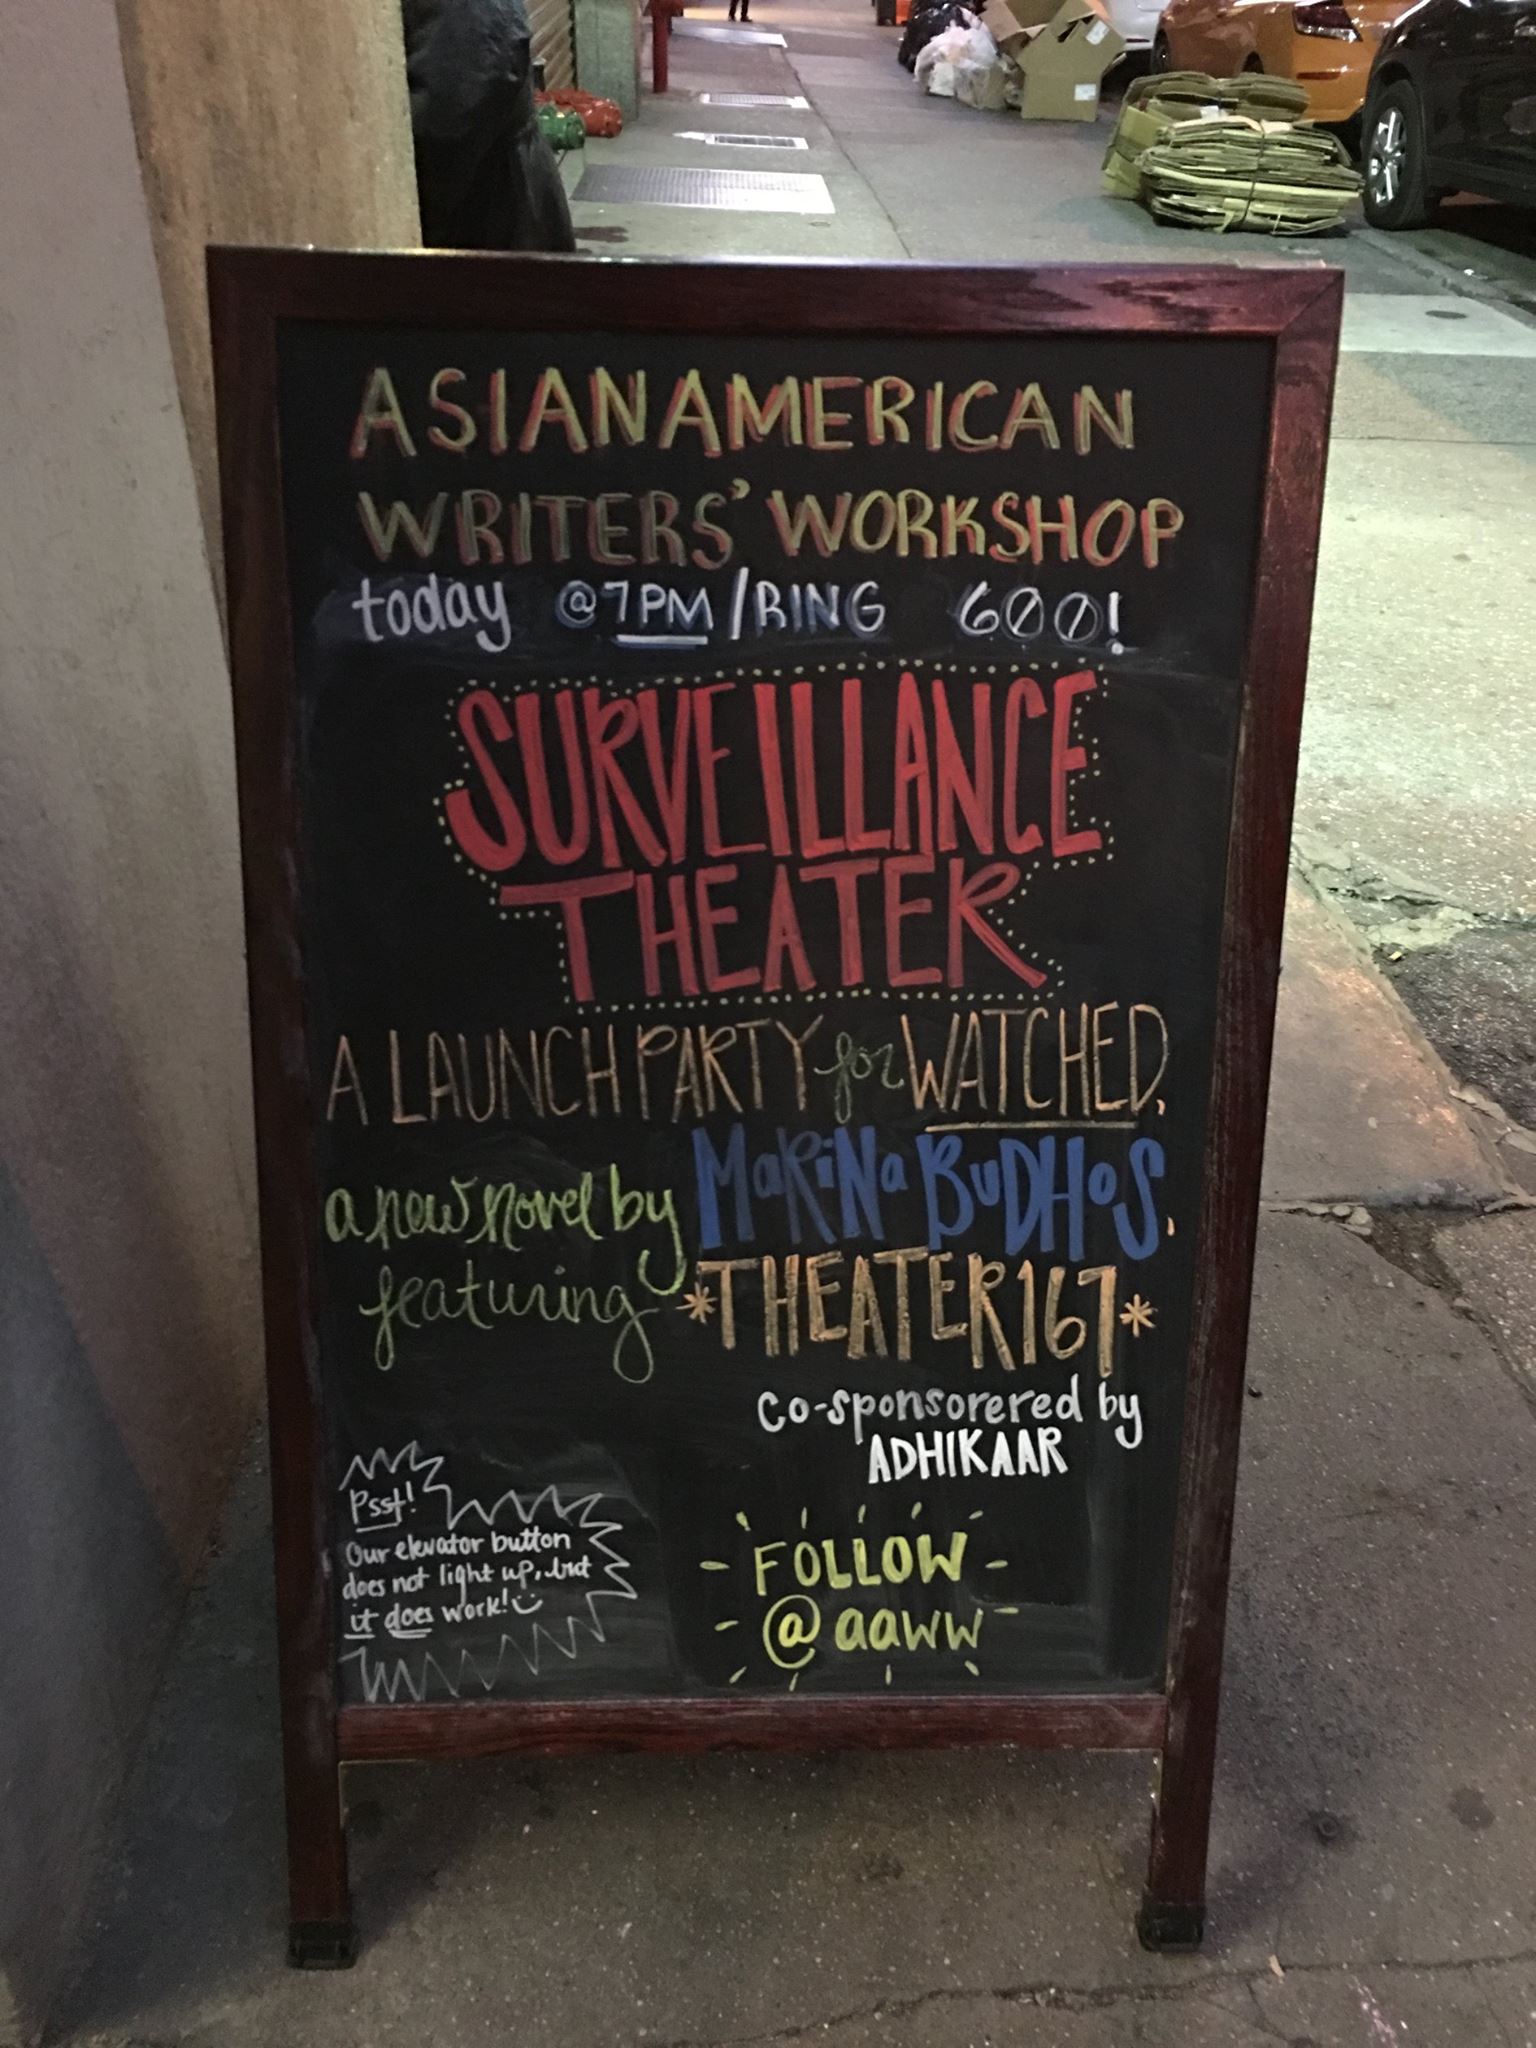 ASIANAMERICAN
WRITERS' WORKSHOP
today @7PM/RING 600!
SURVEILLANCE
THEATER
A LAUNCH PARTY for WATCHED,
a new novel by MARiNa BuDHoS,
featuring *THEATER167*
co-sponsorered by
ADHIKAAR
Psst!
Our elevator button
does not light up, but
it does work! :)
FOLLOW
@aaww